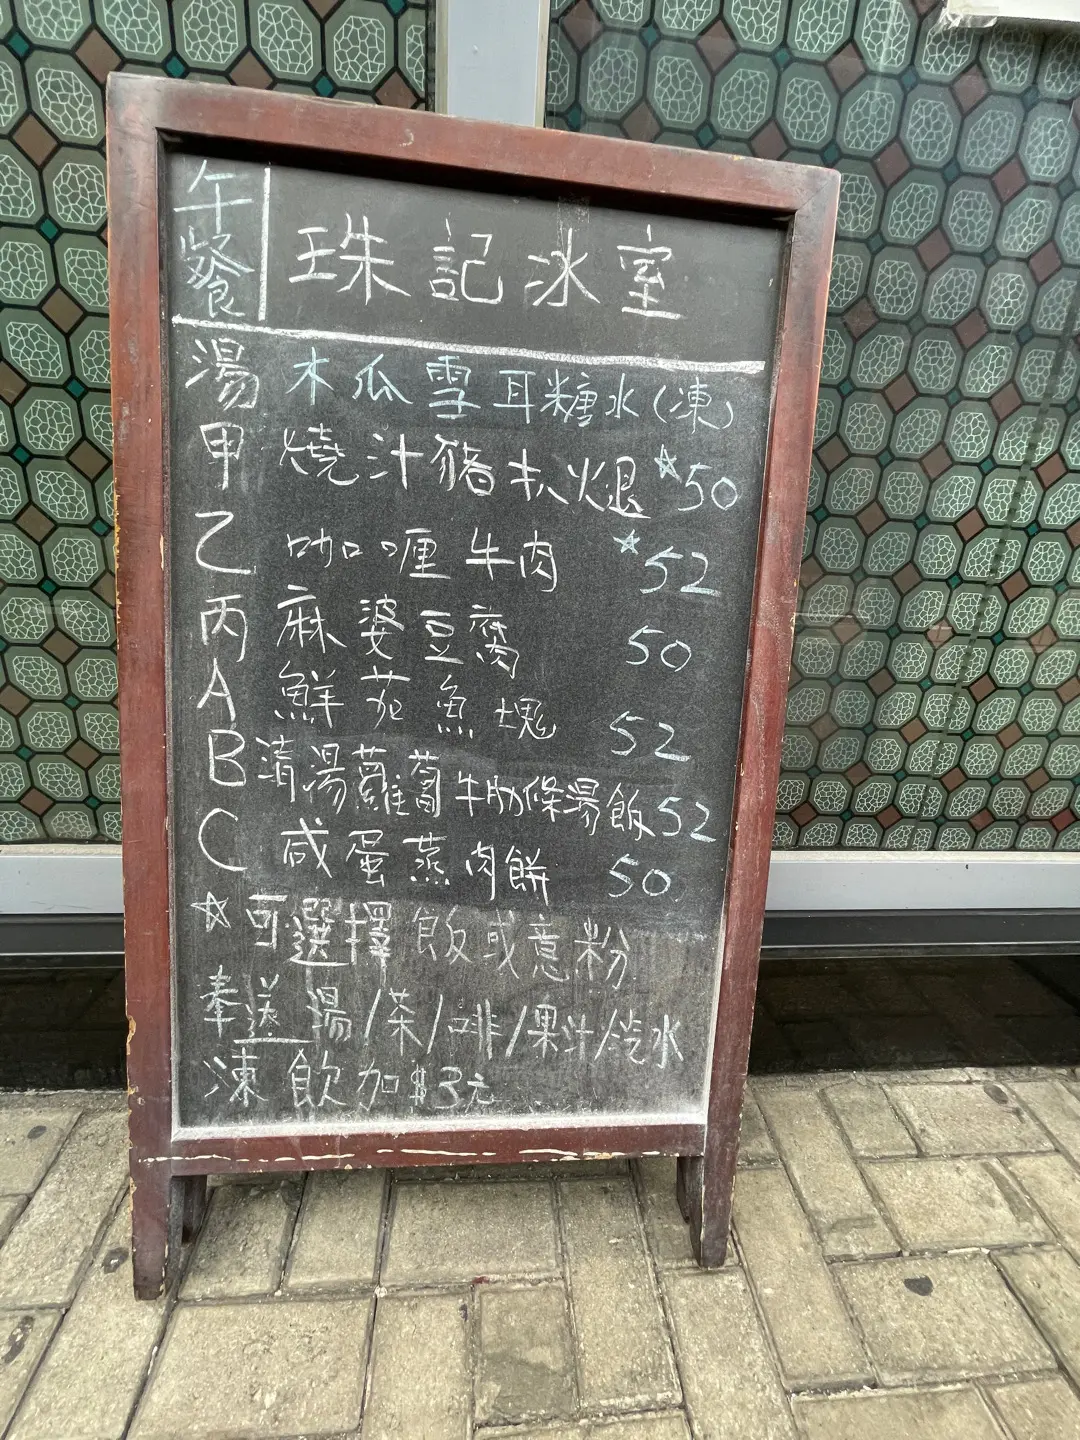 午餐 珠記冰室
湯 木瓜雪耳糖水(凍)
甲 燒汁豬扒火腿 ☆50
乙 咖喱牛肉 ☆52
丙 麻婆豆腐 50
A 鮮茄魚塊 52
B 清湯蘿蔔牛肋條湯飯 52
C 咸蛋蒸肉餅 50
☆可選擇飯或意粉
奉送湯/茶/啡/果汁/汽水
凍飲加$3元